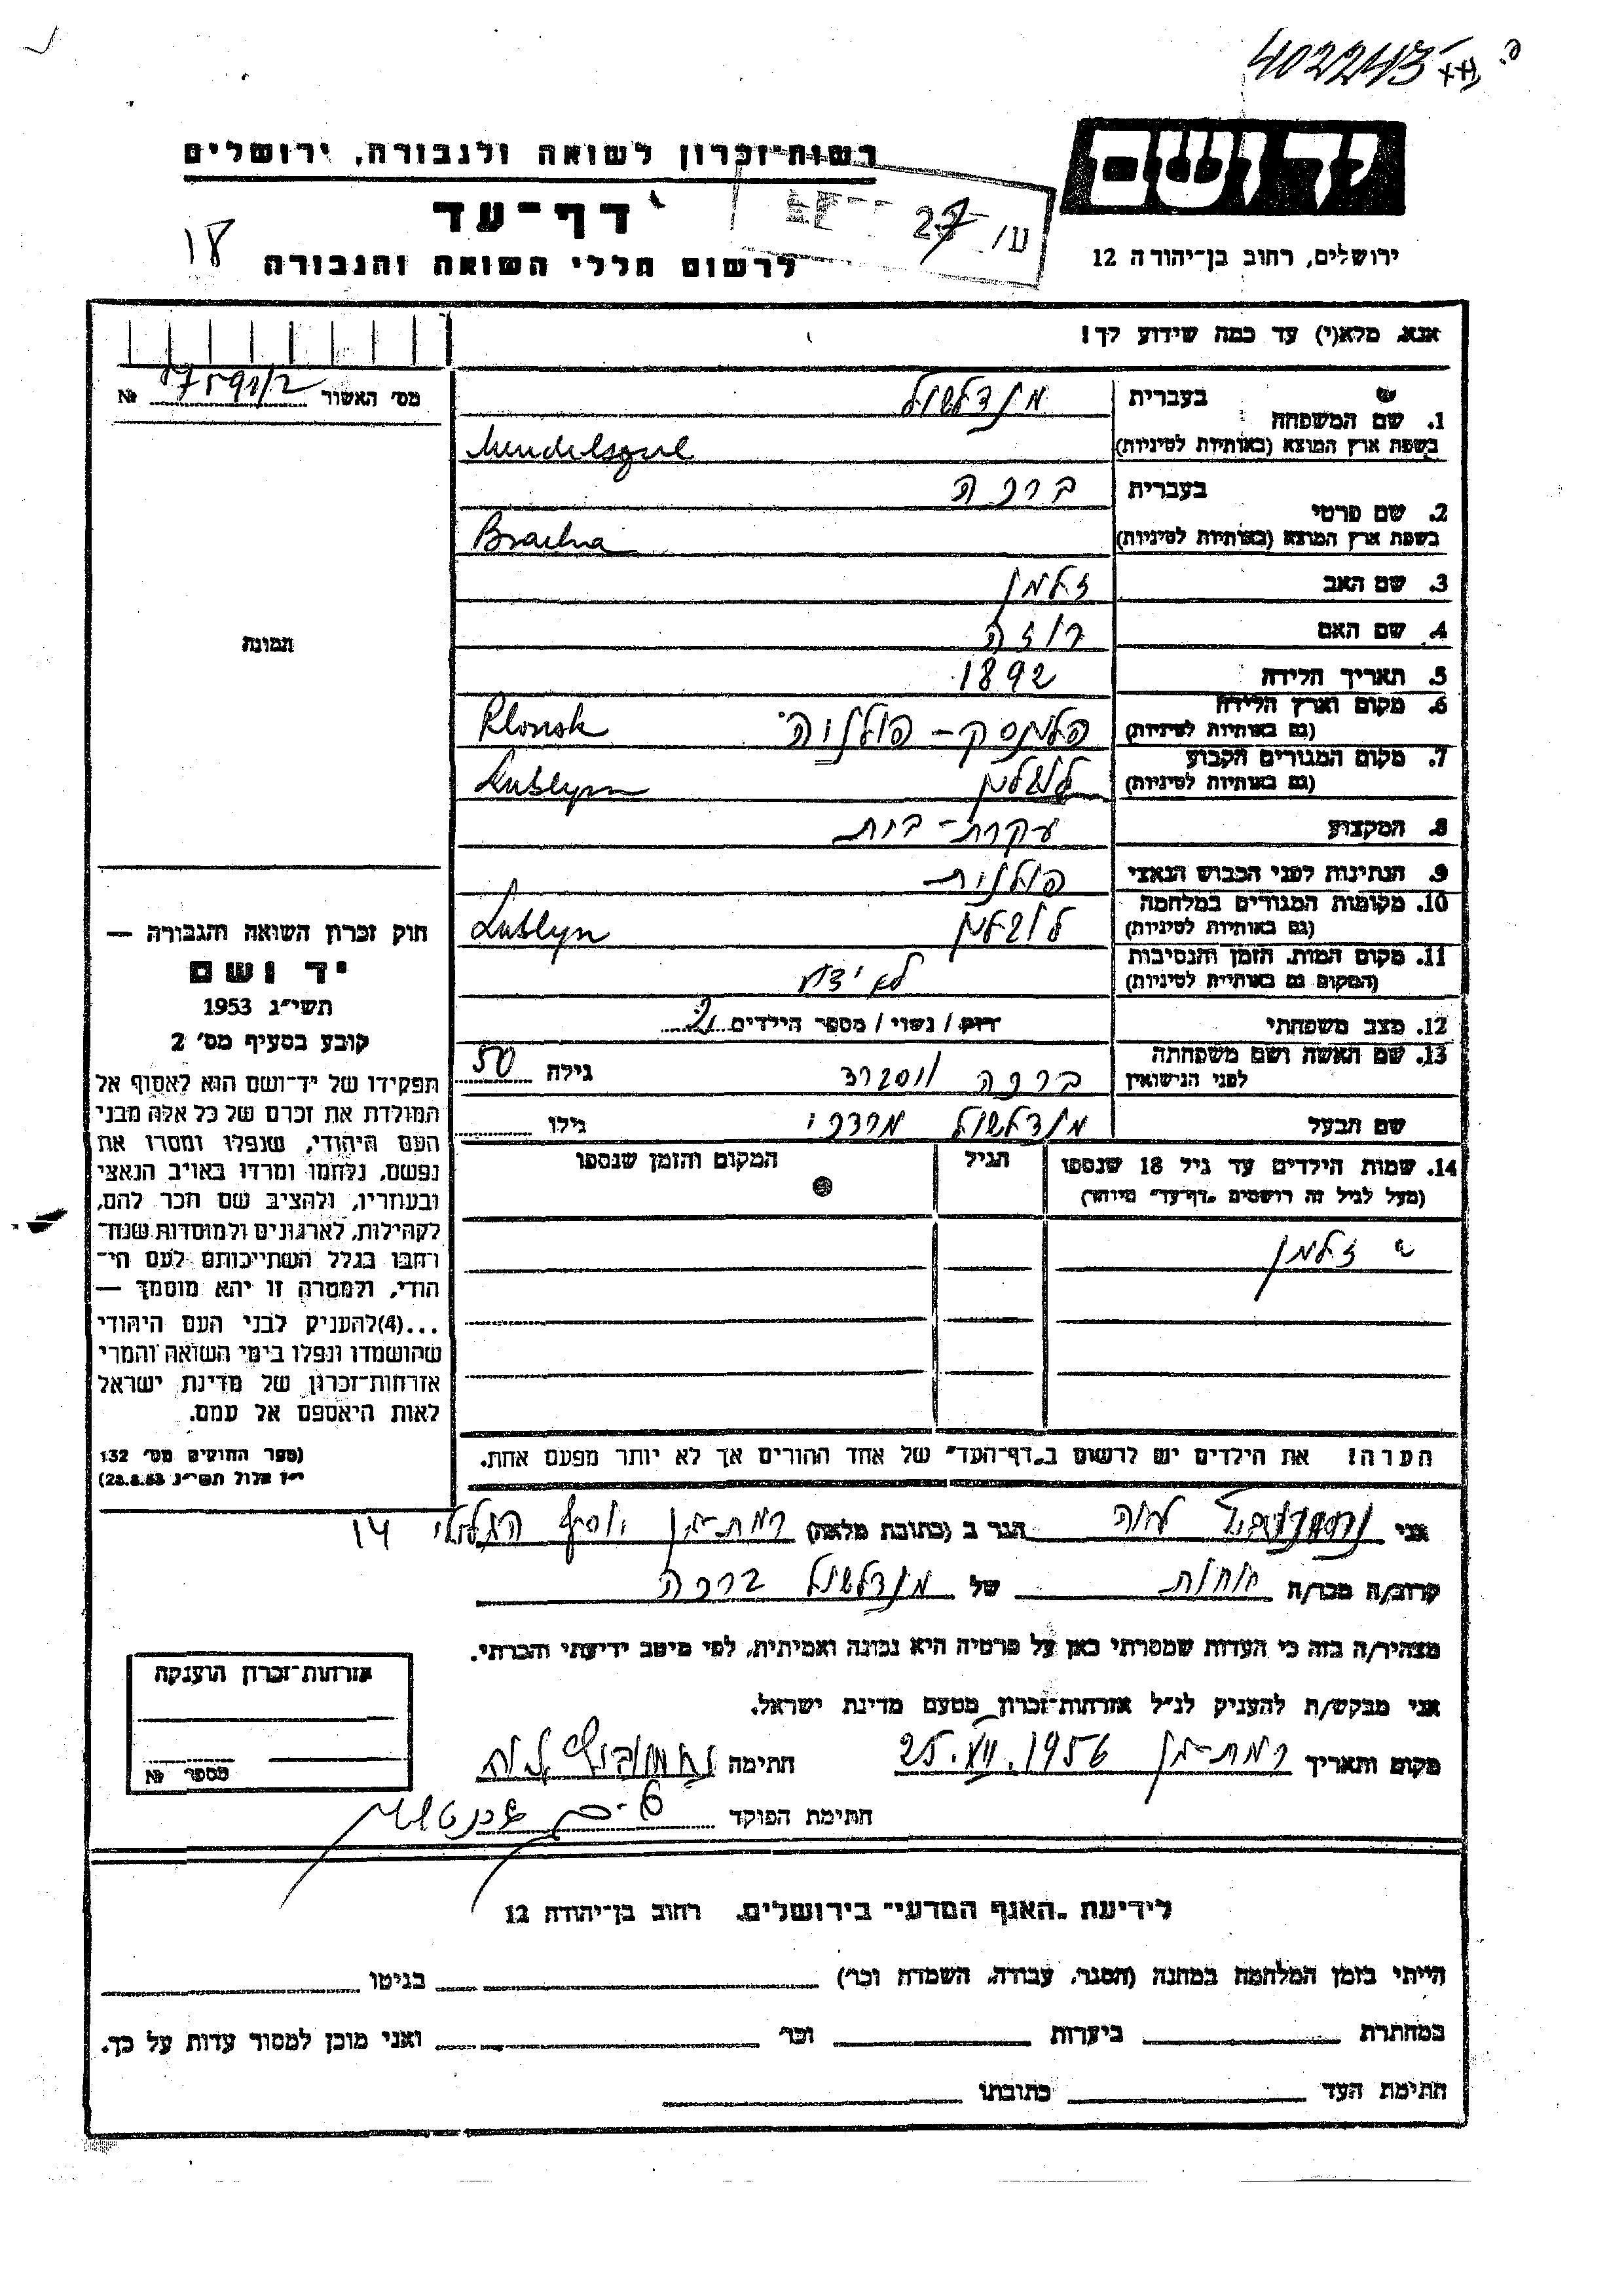 402243
יד ושם
ירושלים, רחוב בן־יהודה 12
רשות־זכרון לשואה ולגבורה, ירושלים
דף־עד
לרשום חללי השואה והגבורה
18
אנא, מלא(י) עד כמה שידוע לך!
מס׳ האשור №
1. שם המשפחה
בעברית
מנדלשול
בשפת ארץ המוצא (באותיות לטיניות)
Mendelszul
2. שם פרטי
בעברית
ברכה
בשפת ארץ המוצא (באותיות לטיניות)
Bracha
3. שם האב זלמן
4. שם האם רוזה
5. תאריך הלידה 1892
6. מקום וארץ הלידה
(גם באותיות לטיניות)
פלונסק - פולניה Plonsk
7. מקום המגורים הקבוע
(גם באותיות לטיניות)
לובלין Lublyn
8. המקצוע עקרת-בית
9. הנתינות לפני הכבוש הנאצי פולנית
10. מקומות המגורים במלחמה
(גם באותיות לטיניות)
לובלין Lublyn
11. מקום המות, הזמן והנסיבות
(המקום גם באותיות לטיניות)
לא ידוע
12. מצב משפחתי רווק / נשוי / מספר הילדים 2
13. שם האשה ושם משפחתה
לפני הנישואין
ברכה גילה 50
שם הבעל מנדלשול מרדכי גילו
14. שמות הילדים עד גיל 18 שנספו
(מעל לגיל זה רושמים „דף־עד״ מיוחד)
הגיל
המקום והזמן שנספו
זלמן
הערה! את הילדים יש לרשום ב„דף־העד״ של אחד ההורים אך לא יותר מפעם אחת.
תמונה
חוק זכרון השואה והגבורה —
יד ושם
תשי״ג 1953
קובע בסעיף מס׳ 2
תפקידו של יד־ושם הוא לאסוף אל
המולדת את זכרם של כל אלה מבני
העם היהודי, שנפלו ומסרו את
נפשם, נלחמו ומרדו באויב הנאצי
ובעוזריו, ולהציב שם וזכר להם,
לקהילות, לארגונים ולמוסדות שנח־
רבו בגלל השתייכותם לעם הי־
הודי, ולמטרה זו יהא מוסמך —
...(4) להעניק לבני העם היהודי
שהושמדו ונפלו בימי השואה והמרי
אזרחות־זכרון של מדינת ישראל
לאות היאספם אל עמם.
(ספר החוקים מס׳ 132
י״ז אלול תשי״ג 28.8.53)
אני הגר ב (כתובת מלאה) רמת-גן יוסף הגלילי 14
קרוב/ה מכר/ה אחות של מנדלשול ברכה
מצהיר/ה בזה כי העדות שמסרתי כאן על פרטיה היא נכונה ואמיתית, לפי מיטב ידיעתי והכרתי.
אני מבקש/ת להעניק לנ״ל אזרחות־זכרון מטעם מדינת ישראל.
מקום ותאריך רמת-גן 25.VII.1956 חתימה
חתימת הפוקד
אזרחות־זכרון הוענקה
מספר №
לידיעת „האגף המדעי״ בירושלים, רחוב בן־יהודה 12
הייתי בזמן המלחמה במחנה (הסגר, עבודה, השמדה וכו׳) בגיטו
במחתרת ביערות וכו׳ ואני מוכן למסור עדות על כך.
חתימת העד כתובתו